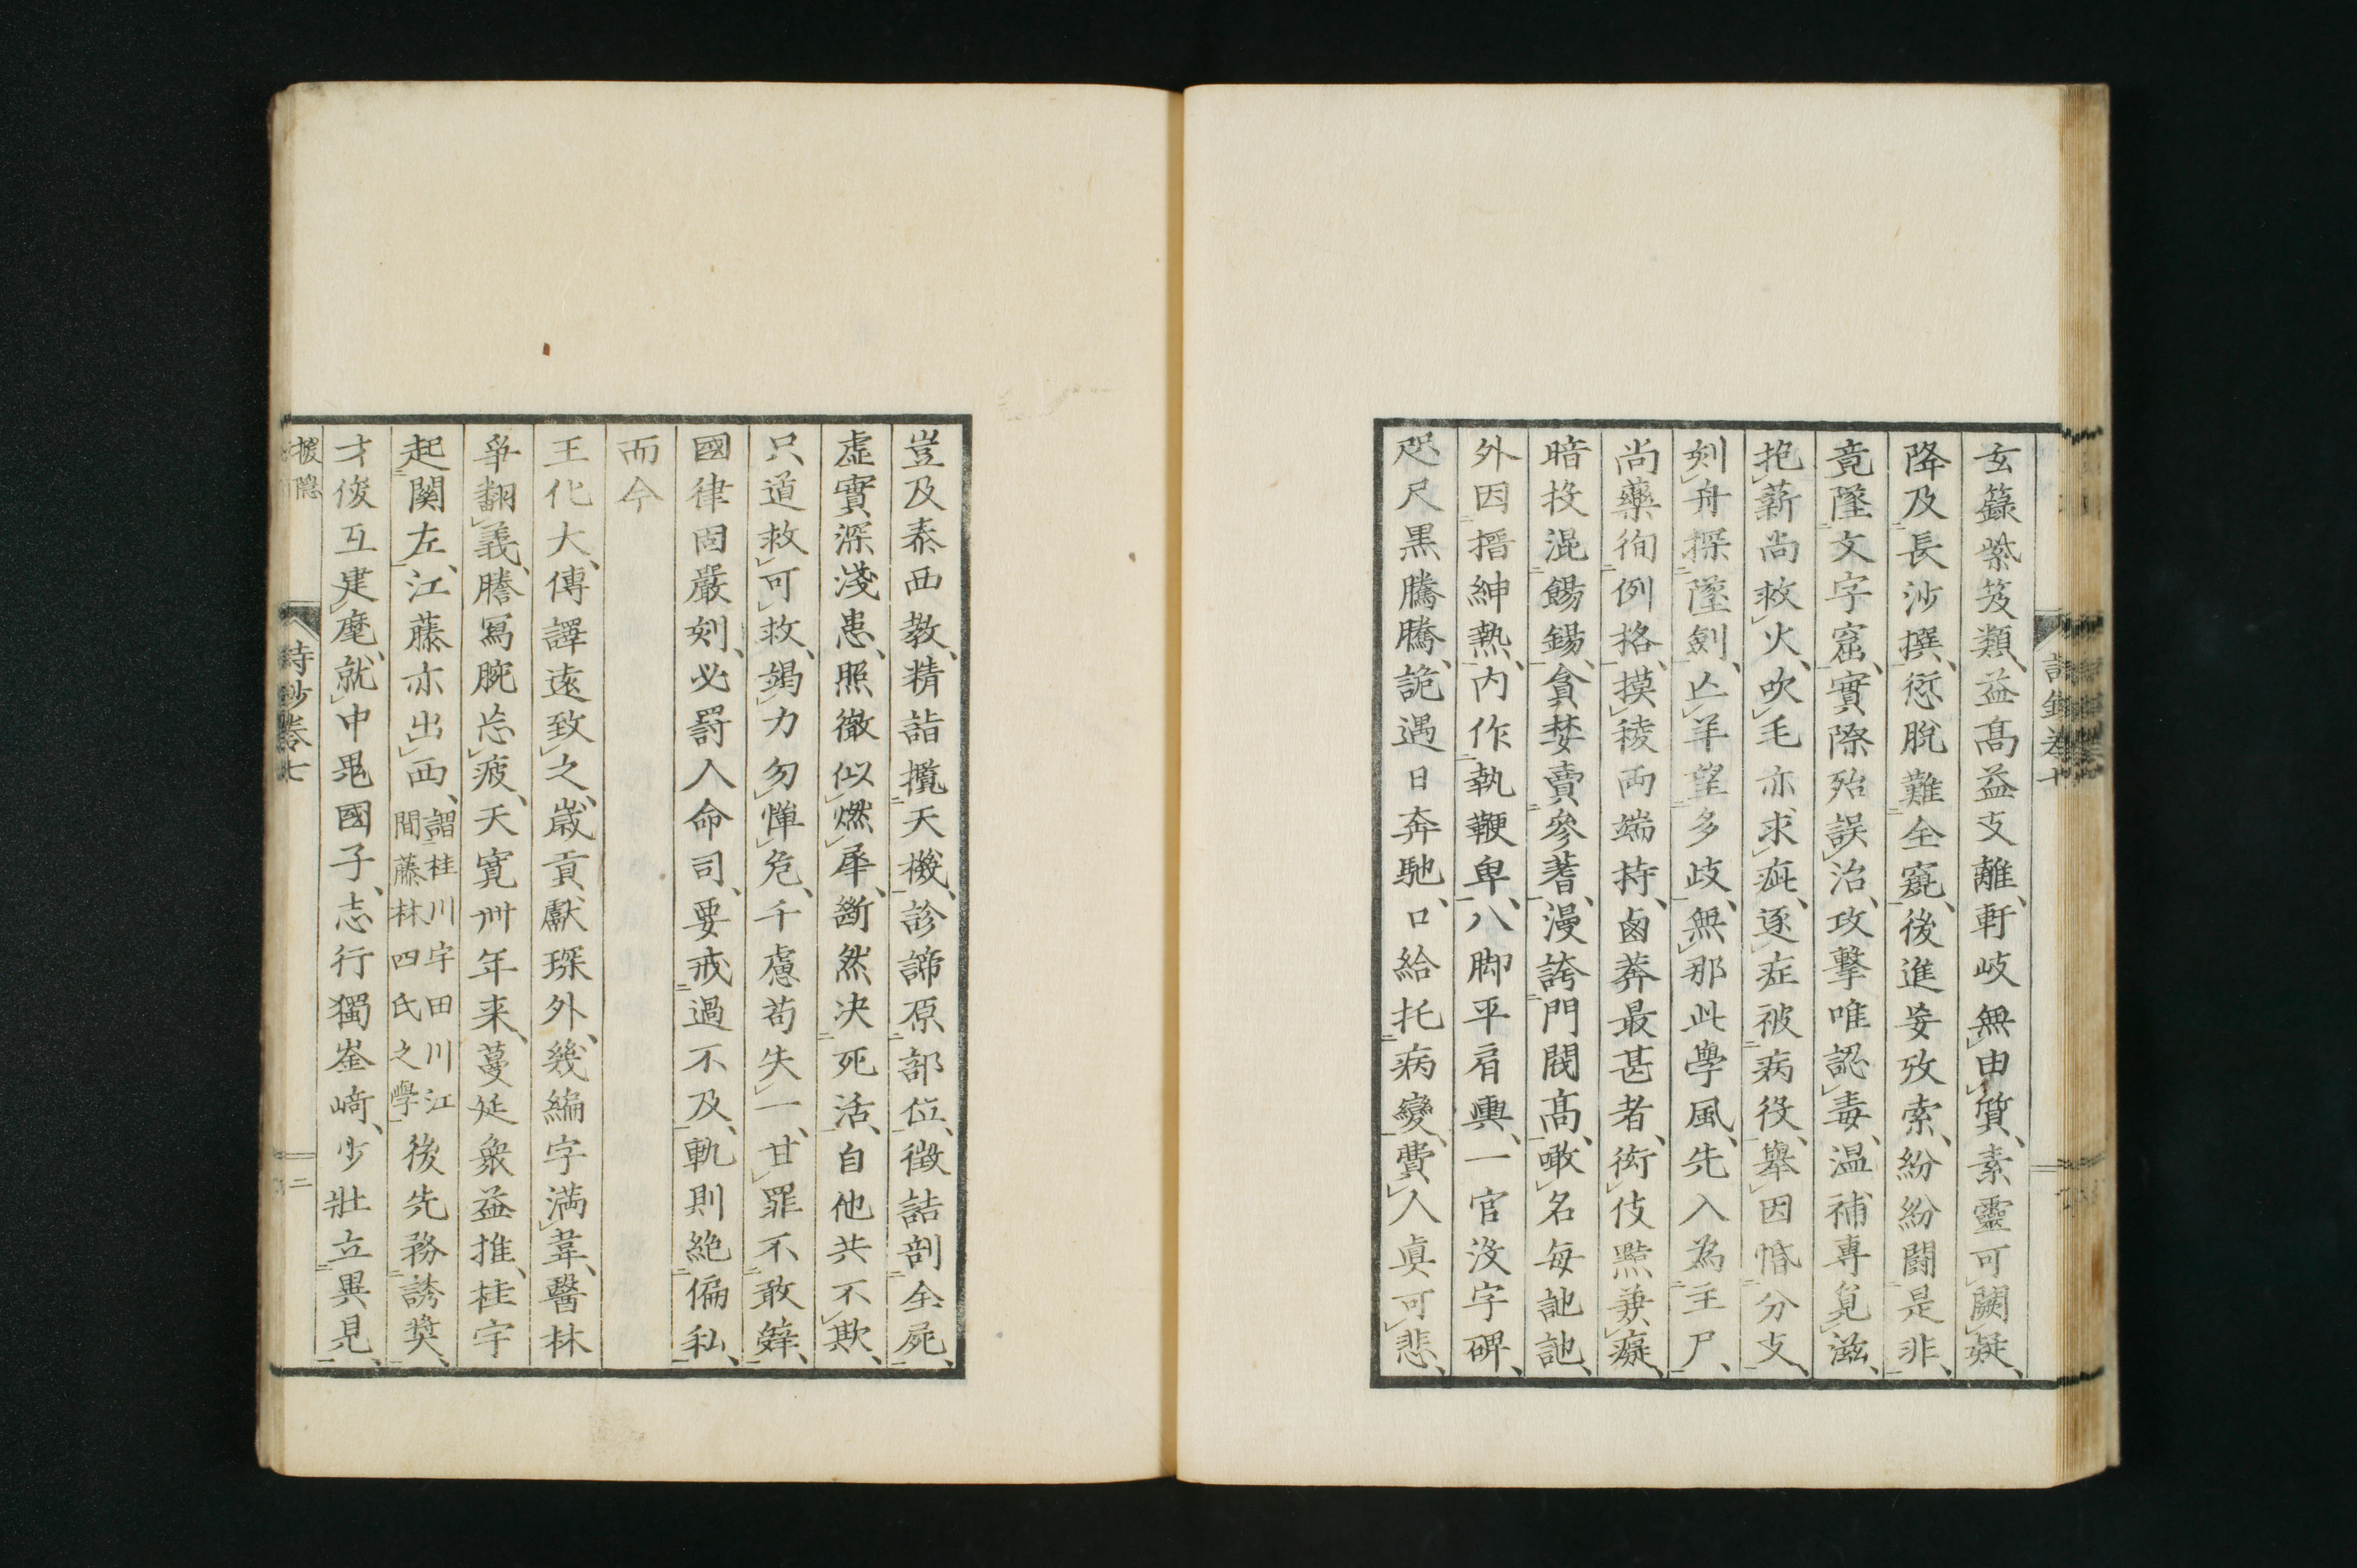 玄籙紫笈類益高益支離軒岐無由質素靈可闕疑
降及長沙撰愆脫難全窺後進妄攷索紛紛鬪是非
竟墜文字窟實際殆誤治攻擊唯認毒温補專覓滋
抱薪尚救火吹毛亦求疵逐症被病役舉因惛分支
刻舟探墜劍亾羊望多歧無那此學風先入為主尸
尚藥徇例格摸稜両端持鹵莽最甚者衒伎㸃兼癡
暗投混餳錫貪婪賣參蓍漫誇門閥髙噉名每訑訑
外因搢紳熱內作執鞭卑八脚平肩輿一官沒字碑
咫尺黒騰騰詭遇日奔馳口給托病變費人眞可悲
豈及泰西教精詣攬天機診諦原部位徵詰剖全屍
虛實深淺患照徹似燃犀斷然决死活自他共不欺
只道救可救竭力勿憚危千慮苟失一甘罪不敢辤
國律固嚴刻必罰人命司要戒過不及軌則絶偏私
而今
王化大傳譯遠致之歲貢獻琛外幾編字満葦醫林
爭翻義謄寫腕忘疲天寛卅年来蔓延衆益推桂宇
起関左江藤亦出西謂桂川宇田川江
間藤林四氏之學後先務誘奬
才俊互建麾就中毘國子志行獨崟﨑少壯立異見
詩鈔卷七
二